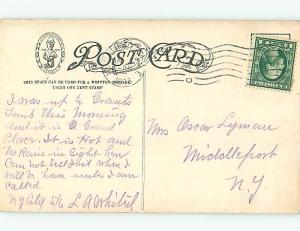 POST CARD
THIS SPACE CAN BE USED FOR A WRITTEN MESSAGE
USING ONE CENT STAMP
I was up to Grants
Tomb this Morning
and it is a Grand
Place. It is Hot and
No Rain in Sight. 
Can not tell Just when I
will be home unless I am
called.
Ny City 5/6 L A
Mrs Oscar Lyman
Middleport
N.Y